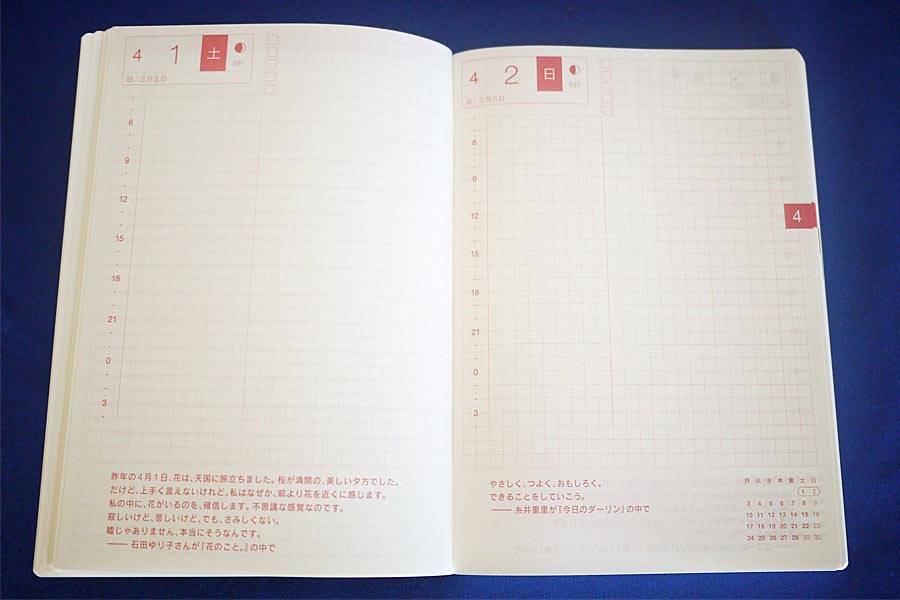 4 1 土
091
旧:三月五日
6
9
12
15
18
21
0
3
昨年の4月1日、花は、天国に旅立ちました。桜が満開の、美しい夕方でした。
だけど、上手く言えないけれど、私はなぜか、前より花を近くに感じます。
私の中に、花がいるのを、確信します。不思議な感覚なのです。
寂しいけど、悲しいけど、でも、さみしくない。
嘘じゃありません、本当にそうなんです。
―― 石田ゆり子さんが『花のこと。』の中で
4 2 日
092
旧:三月六日
6
9
12
15
18
21
0
3
4
やさしく、つよく、おもしろく。
できることをしていこう。
―― 糸井重里が『今日のダーリン』の中で
月 火 水 木 金 土 日
1 2
3 4 5 6 7 8 9
10 11 12 13 14 15 16
17 18 19 20 21 22 23
24 25 26 27 28 29 30